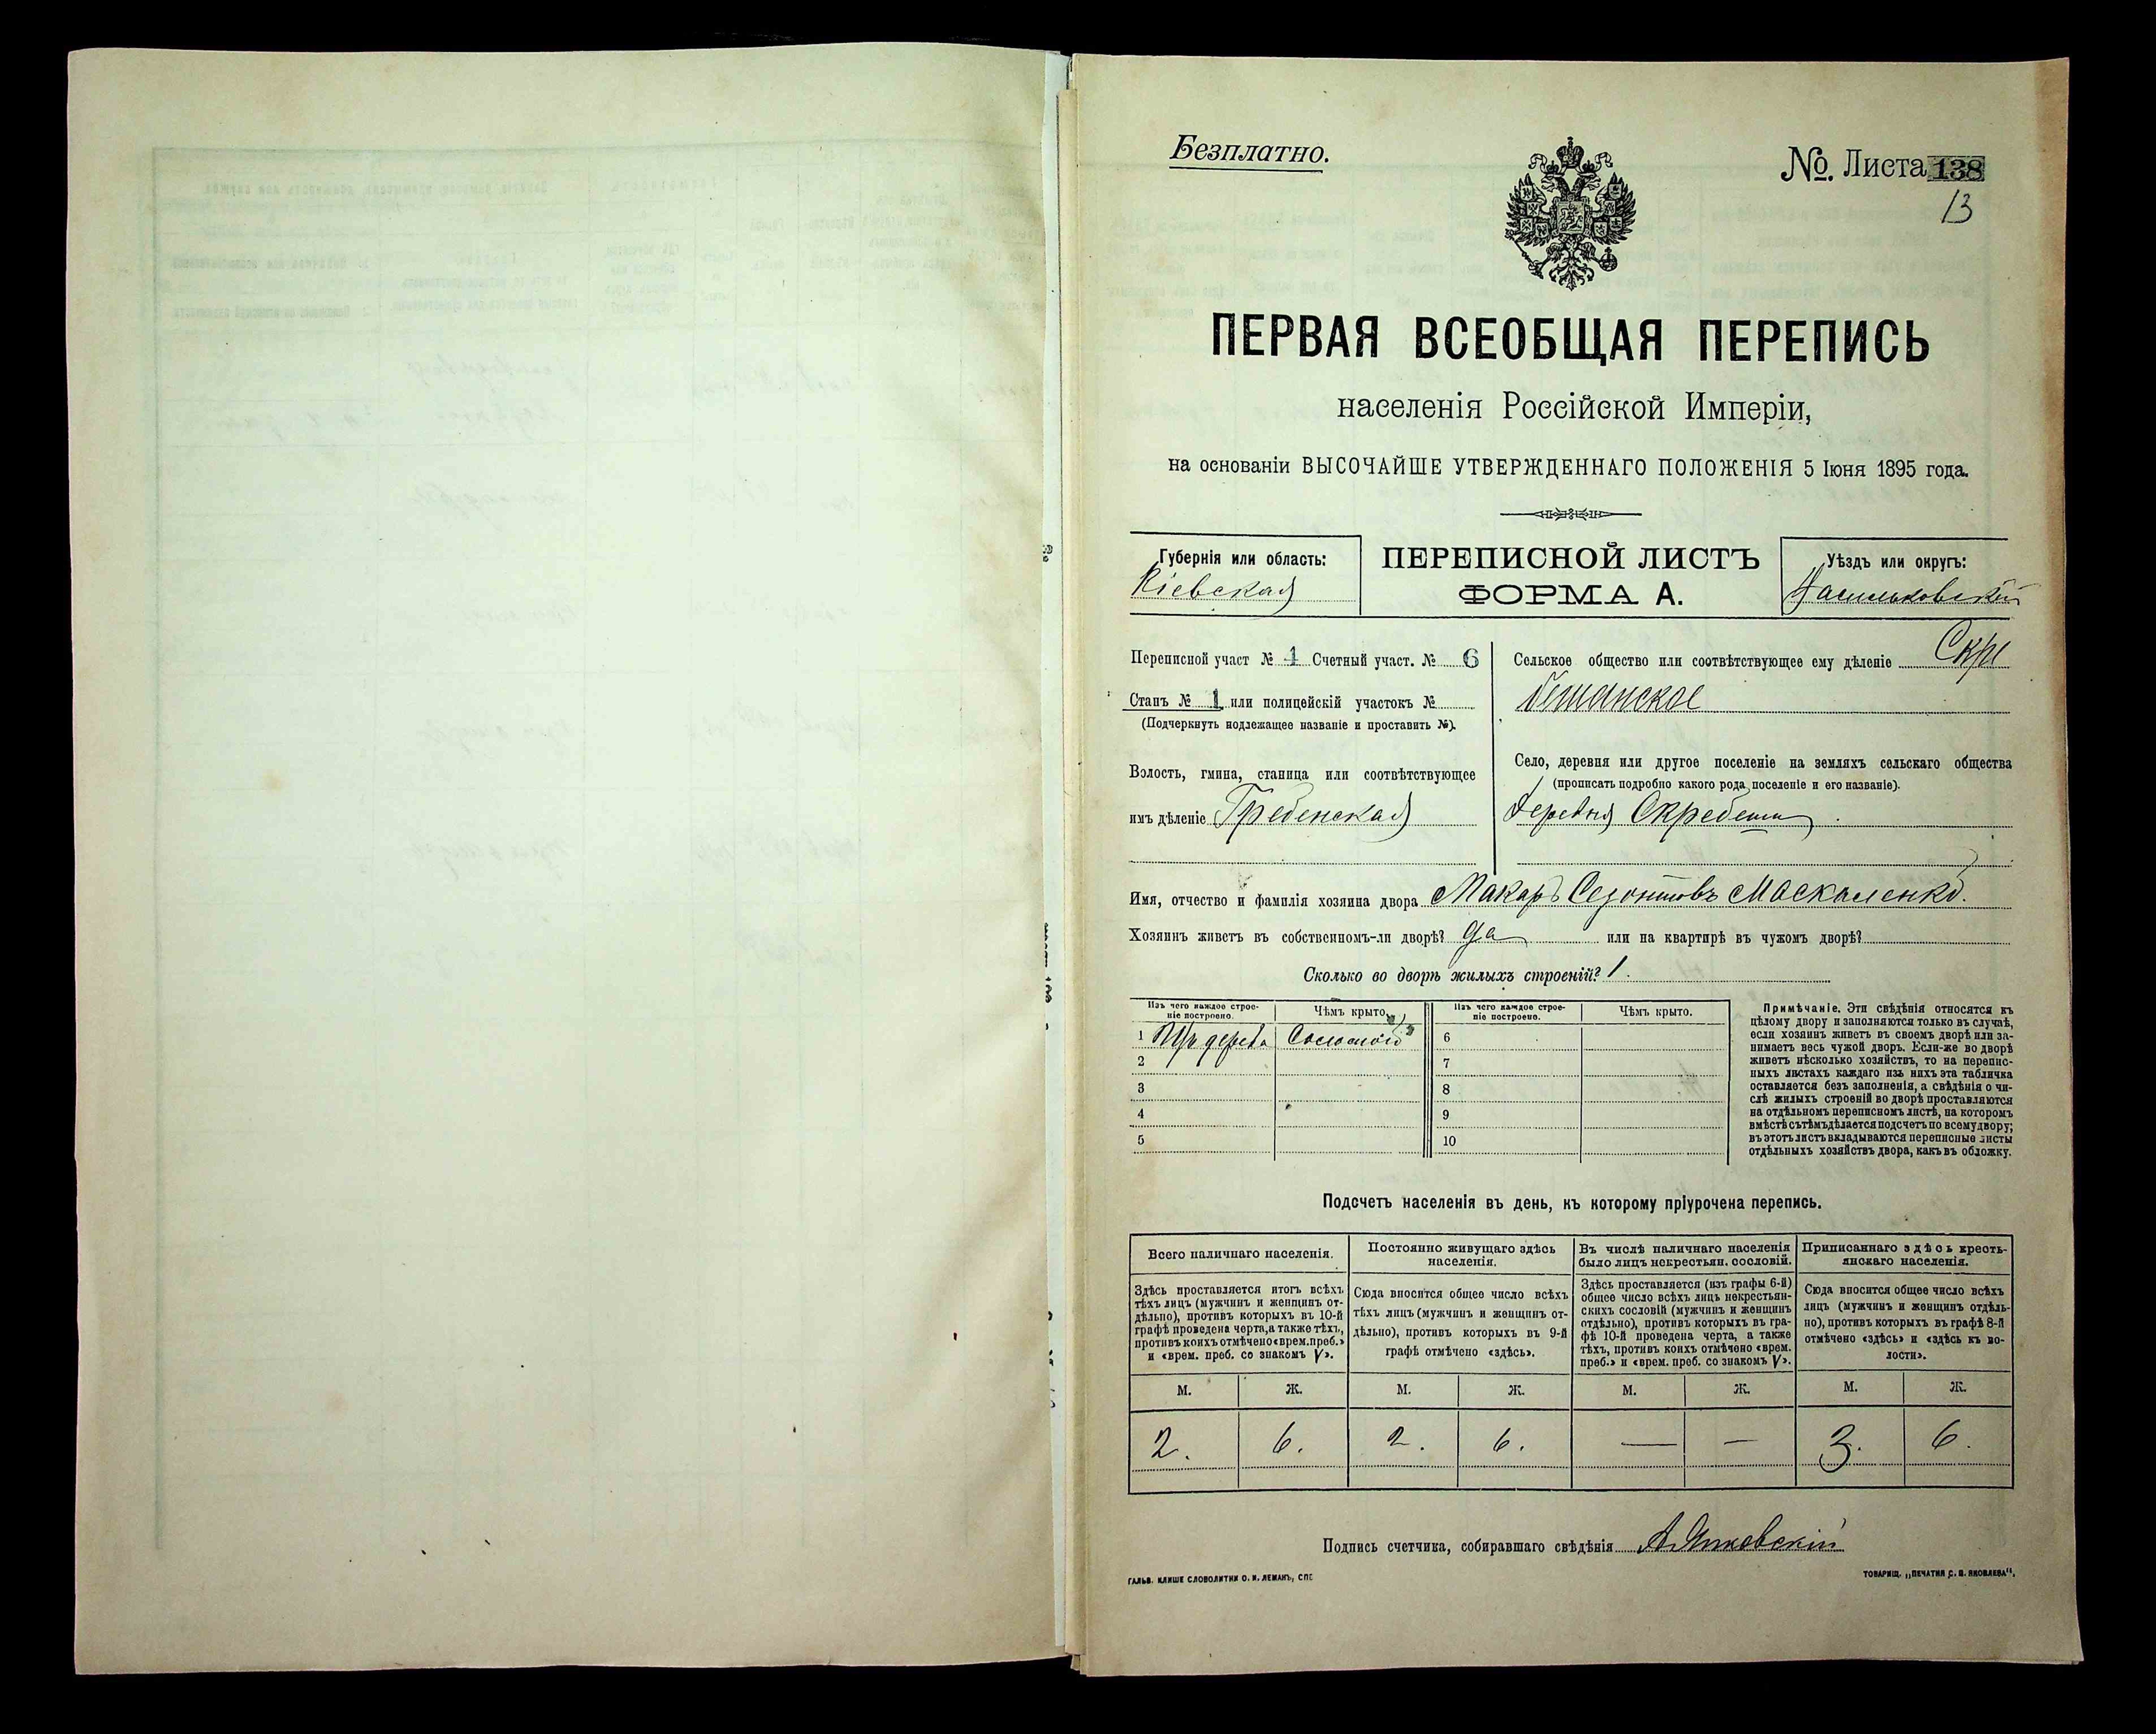 Безплатно.
№. Листа 138
13
ПЕРВАЯ ВСЕОБЩАЯ ПЕРЕПИСЬ
населенія Россійской Имперіи,
на основаніи ВЫСОЧАЙШЕ УТВЕРЖДЕННАГО ПОЛОЖЕНІЯ 5 Іюня 1895 года.
Губернія или область:
Кіевская
ПЕРЕПИСНОЙ ЛИСТЪ
ФОРМА А.
Уѣздъ или округъ:
Васильковскій
Переписной участ № 1 Счетный участ. № 6
Станъ № 1 или полицейскій участокъ №
(Подчеркнуть подлежащее названіе и проставить №).
Волость, гмина, станица или соотвѣтствующее
имъ дѣленіе Гребенская
Сельское общество или соотвѣтствующее ему дѣленіе Скре
бешанское
Село, деревня или другое поселеніе на земляхъ сельскаго общества
(прописать подробно какого рода поселеніе и его названіе).
деревня Скребеши
Имя, отчество и фамилія хозяина двора Макаръ Созонтовъ Москаленко.
Хозяинъ живетъ въ собственномъ-ли дворѣ? да или на квартирѣ въ чужомъ дворѣ?
Сколько во дворѣ жилыхъ строеній? 1.
Изъ чего каждое строе-
ніе построено.
Чѣмъ крыто.
Изъ чего каждое строе-
ніе построено.
Чѣмъ крыто.
1 Изъ дерева Соломою 6
2 7
3 8
4 9
5 10
Примѣчаніе. Эти свѣдѣнія относятся къ
цѣлому двору и заполняются только въ случаѣ,
если хозяинъ живетъ въ своемъ дворѣ или за-
нимаетъ весь чужой дворъ. Если-же во дворѣ
живетъ нѣсколько хозяйствъ, то на перепис-
ныхъ листахъ каждаго изъ нихъ эта табличка
оставляется безъ заполненія, а свѣдѣнія о чи-
слѣ жилыхъ строеній во дворѣ проставляются
на отдѣльномъ переписномъ листѣ, на которомъ
вмѣстѣ съ тѣмъ дѣлается подсчетъ по всему двору;
въ этотъ листъ вкладываются переписные листы
отдѣльныхъ хозяйствъ двора, какъ въ обложку.
Подсчетъ населенія въ день, къ которому пріурочена перепись.
Всего наличнаго населенія.
Здѣсь проставляется итогъ всѣхъ
тѣхъ лицъ (мужчинъ и женщинъ от-
дѣльно), противъ которыхъ въ 10-й
графѣ проведена черта, а также тѣхъ,
противъ коихъ отмѣчено «врем. преб.»
и «врем. преб. со знакомъ V».
Постоянно живущаго здѣсь
населенія.
Сюда вносится общее число всѣхъ
тѣхъ лицъ (мужчинъ и женщинъ от-
дѣльно), противъ которыхъ въ 9-й
графѣ отмѣчено «здѣсь».
Въ числѣ наличнаго населенія
было лицъ некрестьян. сословій.
Здѣсь проставляется (изъ графы 6-й)
общее число всѣхъ лицъ некрестьян-
скихъ сословій (мужчинъ и женщинъ
отдѣльно), противъ которыхъ въ гра-
фѣ 10-й проведена черта, а также
тѣхъ, противъ коихъ отмѣчено «врем.
преб.» и «врем. преб. со знакомъ V».
Приписаннаго здѣсь кресть-
янскаго населенія.
Сюда вносится общее число всѣхъ
лицъ (мужчинъ и женщинъ отдѣль-
но), противъ которыхъ въ графѣ 8-й
отмѣчено «здѣсь» и «здѣсь къ во-
лости».
М. Ж. М. Ж. М. Ж. М. Ж.
2. 6. 2. 6. — — 3. 6.
Подпись счетчика, собиравшаго свѣдѣнія
ГАЛЬВ. КЛИШЕ СЛОВОЛИТНИ О. И. ЛЕМАНЪ, СПБ
ТОВАРИЩ. „ПЕЧАТНЯ С. П. ЯКОВЛЕВА“.